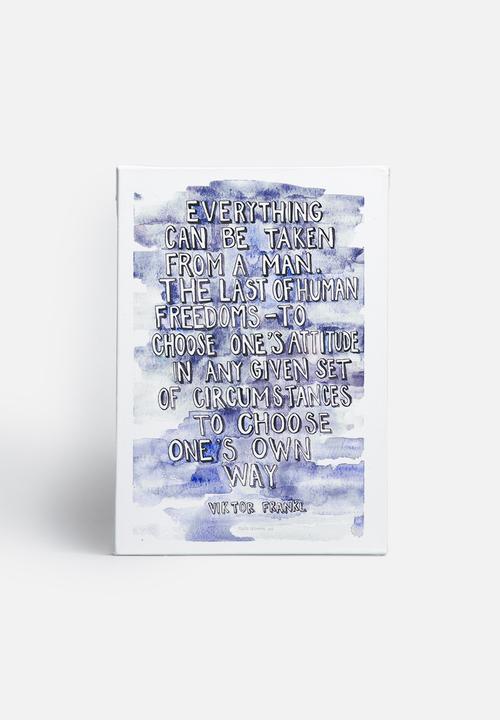 EVERYTHING
CAN BE TAKEN
FROM A MAN.
THE LAST OF HUMAN
FREEDOMS - TO
CHOOSE ONE'S ATTITUDE
IN ANY GIVEN SET
OF CIRCUMSTANCES
TO CHOOSE
ONE'S OWN
WAY
VIKTOR FRANKL